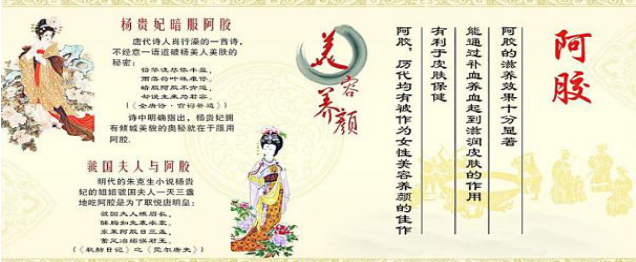 杨贵妃暗服阿胶
唐代诗人肖行澡的一首诗,
不经意一语道破杨美人美肤的
秘密:
铅华洗尽依丰盈,
雨落荷叶珠难停,
暗服阿胶不肯道,
却说生来为君容。
(《全唐诗·宫词补遗》)
诗中明确指出,杨贵妃拥
有倾城美貌的奥秘就在于服用
阿胶.
虢国夫人与阿胶
明代的朱克生小说杨贵
妃的姐姐虢国夫人一天三盏
地吃阿胶是为了取悦唐明皇:
虢国夫人娥眉长,
酥胸如兔裹衣裳,
东莱阿胶日三盏,
蓄足冶媚误君王。
(《秋舫日记》之《莞尔唐史》)
美容养颜
阿胶
阿胶的滋养效果十分显著
能通过补血养血起到滋润皮肤的作用
有利于皮肤保健
阿胶，历代均有被作为女性美容养颜的佳作